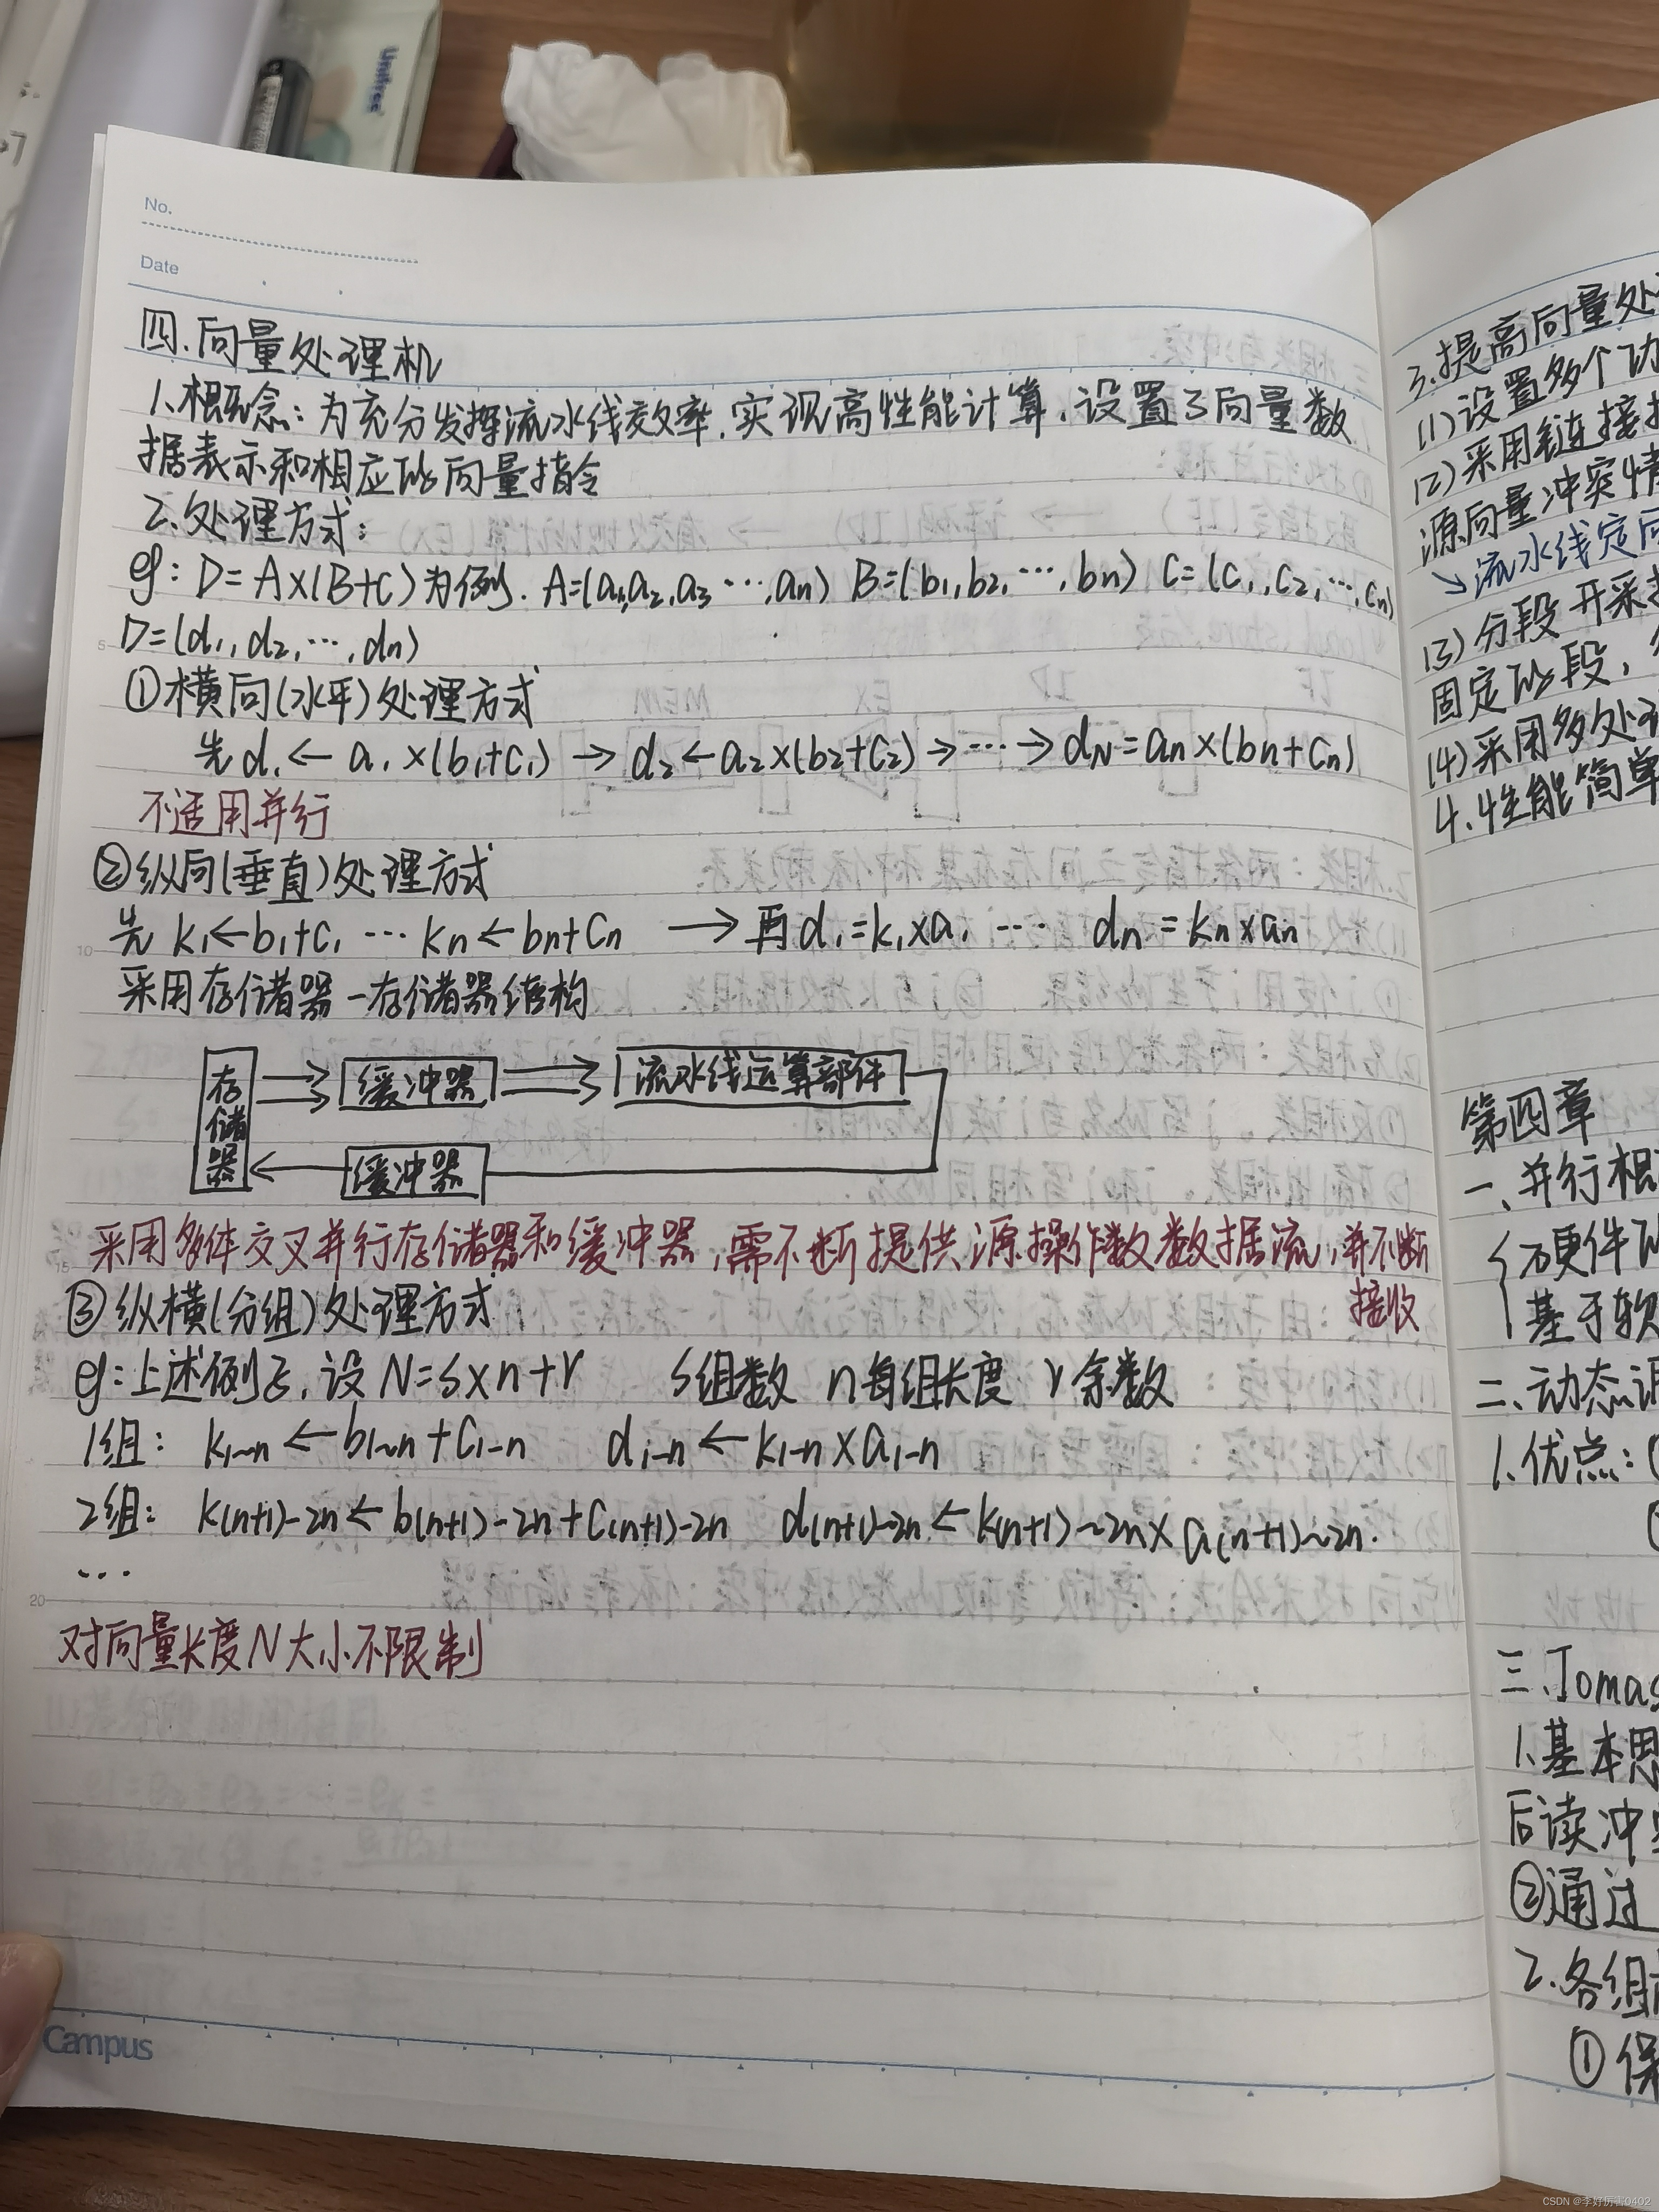 Unifree
No.
Date
四.向量处理机
1.概念:为充分发挥流水线效率,实现高性能计算,设置了向量数
据表示和相应的向量指令
2.处理方式:
eg: D=A×(B+C)为例. A=(a1,a2,a3…,an) B=(b1,b2,…,bn) C=(c1,c2,…,cn)
D=(d1,d2,…,dn)
①横向(水平)处理方式
先d1←a1×(b1+c1)→d2←a2×(b2+c2)→…→dN=an×(bn+cn)
不适用并行
②纵向(垂直)处理方式
先 k1←b1+c1 … kn←bn+cn → 再d1=k1×a1 … dn=kn×an
采用存储器-存储器结构
存储器
缓冲器
流水线运算部件
缓冲器
采用多体交叉并行存储器和缓冲器,需不断提供源操作数数据流,并不断
接收
③纵横(分组)处理方式
eg:上述例子,设N=s×n+r s组数 n每组长度 r余数
1组: k1~n←b1~n+c1-n d1-n←k1-n×a1-n
2组: k(n+1)-2n←b(n+1)-2n+c(n+1)-2n d(n+1)-2n←k(n+1)~2n×a(n+1)~2n.
…
对向量长度N大小不限制
5
10
15
20
Campus
3.提高向量处
(1)设置多个功
(2)采用链接技
源向量冲突情
↘流水线定向
(3)分段开采技
固定的段,
(4)采用多处理
4.性能简单
第四章
一、并行概
硬件的
基于软
二、动态调
1.优点:(
三.Tomas
1.基本思
后读冲突
②通过
2.各组
①保
CSDN @李好厉害0402